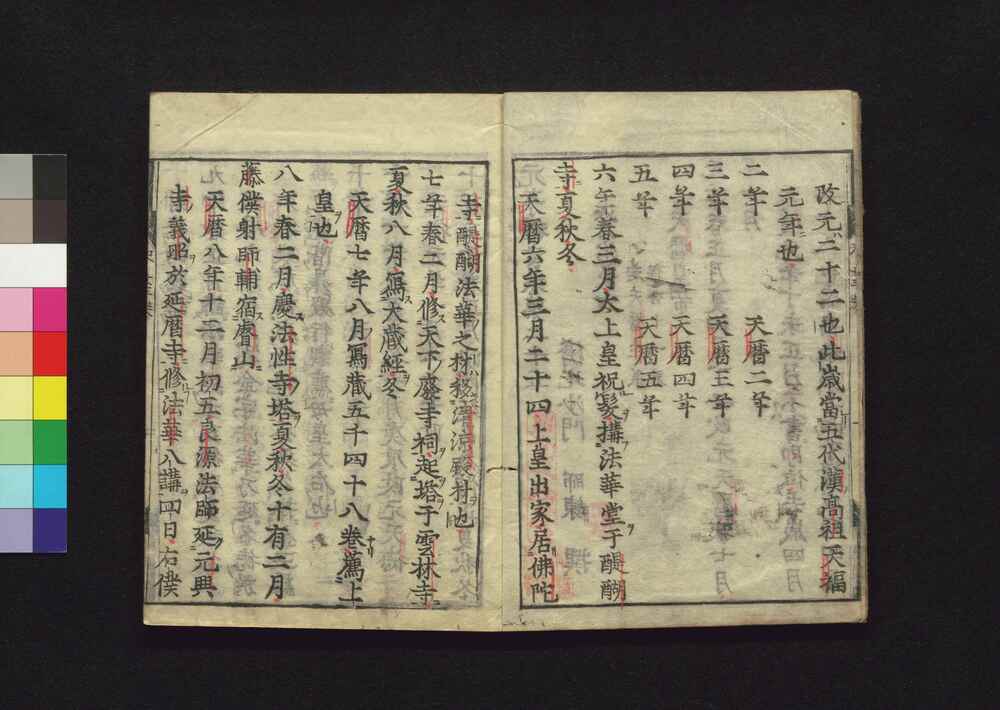 改元二十二也此歲當五代漢高祖天福
元年也
二年 天曆二年
三年 天曆三年
四年 天曆四年
五年 天曆五年
六年春三月太上皇祝髮搆法華堂于醍醐
寺夏秋冬
天曆六年三月二十四上皇出家居佛陀
寺醍醐法華之材移淸涼殿材也
七年春二月修天下廢寺祠起塔于雲林寺
夏秋八月寫大藏經冬
天曆七年八月寫藏五千四十八卷薦上
皇也
八年春二月慶法性寺塔夏秋冬十有二月
藤僕射師輔宿睿山
天曆八年十二月初五泉源法師延元興
寺義昭於延曆寺修法華八講四日右僕